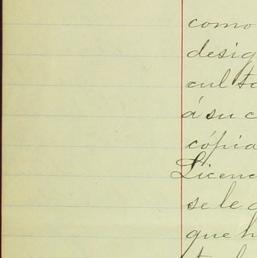 como
desig
cul to
á su c
cópia
Licenc
se le c
que h